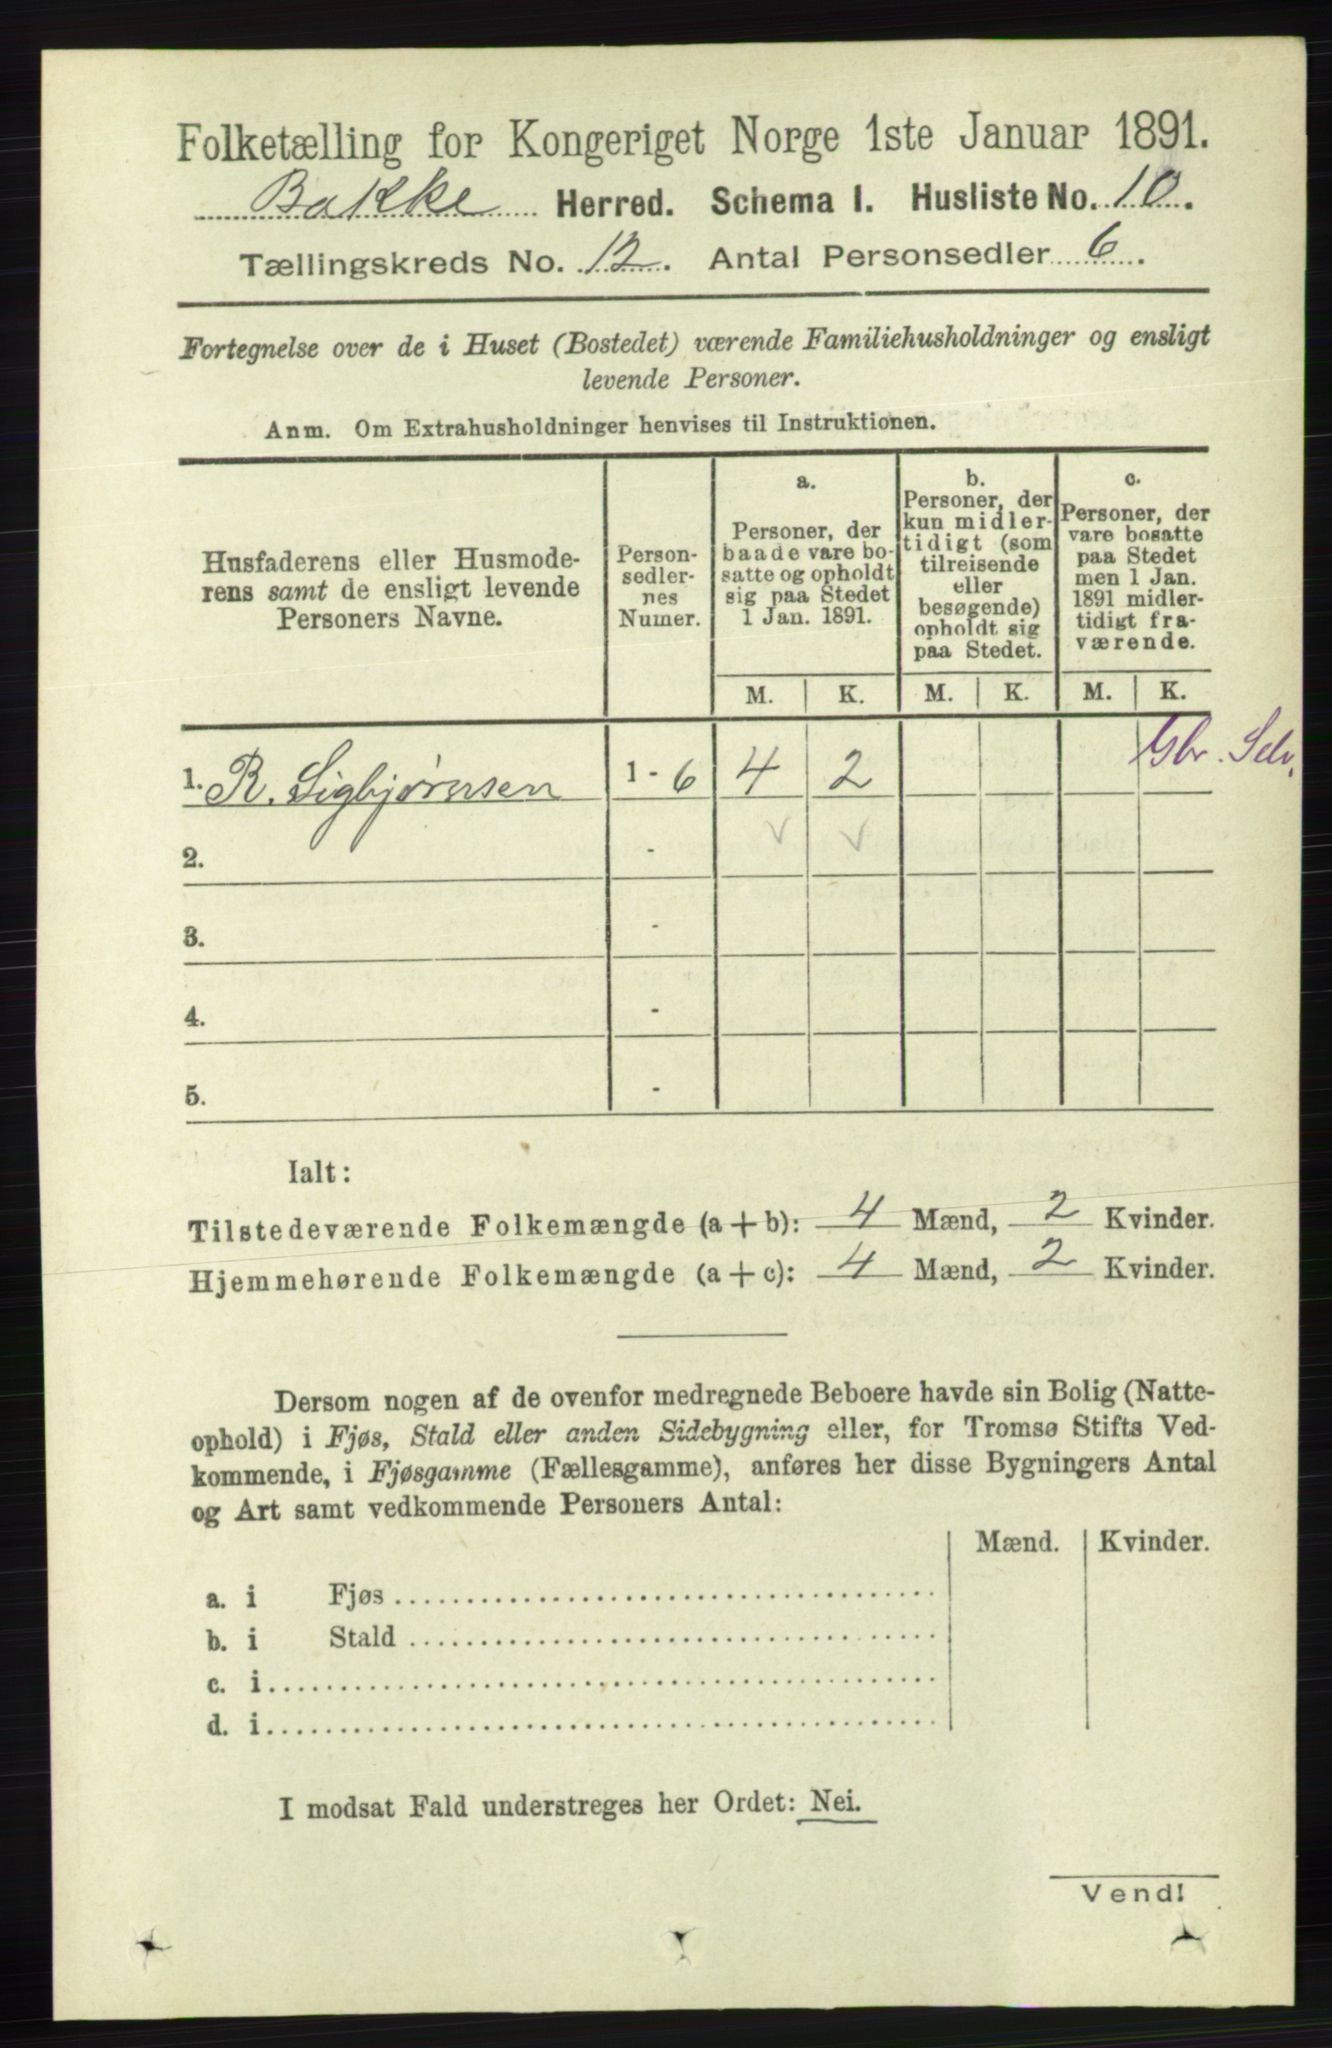 Folketælling for Kongeriget Norge 1ste Januar 1891.
Bakke Herred. Schema I. Husliste No. 10.
Tællingskreds No. 12. Antal Personsedler 6.
Fortegnelse over de i Huset (Bostedet) værende Familiehusholdninger og ensligt
levende Personer.
Anm. Om Extrahusholdninger henvises til Instruktionen.
Husfaderens eller Husmode-
rens samt de ensligt levende
Personers Navne.
Person-
sedler-
nes
Numer.
a.
Personer, der
baade vare bo-
satte og opholdt
sig paa Stedet
1 Jan. 1891.
b.
Personer, der
kun midler-
tidigt (som
tilreisende
eller
besøgende)
opholdt sig
paa Stedet.
c.
Personer, der
vare bosatte
paa Stedet
men 1 Jan.
1891 midler-
tidigt fra-
værende.
M. K. M. K. M. K.
1. R. Sigbjørnsen 1 - 6 4 2 Gbr. Selv.
2. - v v
3. -
4. -
5. -
Ialt:
Tilstedeværende Folkemængde (a + b): 4 Mænd, 2 Kvinder.
Hjemmehørende Folkemængde (a + c): 4 Mænd, 2 Kvinder.
Dersom nogen af de ovenfor medregnede Beboere havde sin Bolig (Natte-
ophold) i Fjøs, Stald eller anden Sidebygning eller, for Tromsø Stifts Ved-
kommende, i Fjøsgamme (Fællesgamme), anføres her disse Bygningers Antal
og Art samt vedkommende Personers Antal:
Mænd. Kvinder.
a. i Fjøs
b. i Stald
c. i
d. i
I modsat Fald understreges her Ordet: Nei.
Vend!